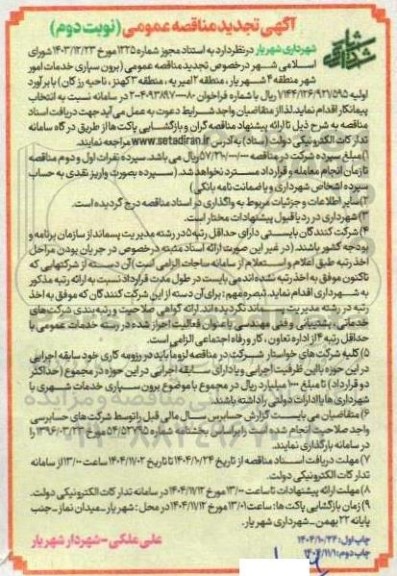 آگهی تجدید مناقصه عمومی (نوبت دوم)
شهرداری شهریار
شهرداری شهریار در نظر دارد به استناد مجوز شماره ۱۲۲۵ مورخ ۱۴۰۳/۱۲/۲۳ شورای
اسلامی شهر در خصوص تجدید مناقصه عمومی (برون سپاری خدمات امور
شهر منطقه ۴ شهریار ، منطقه ۲ امیریه ، منطقه ۳ کهنز ، ناحیه رزکان) با برآورد
اولیه ۷۱۴۴/۱۲۶/۹۲۷/۵۹۵ ریال با شماره فراخوان ۲۰۰۴۰۹۳۸۹۷۰۰۰۰۸۰ در سامانه نسبت به انتخاب
پیمانکار اقدام نماید لذا از متقاضیان واجد شرایط دعوت به عمل می آید جهت دریافت اسناد
مناقصه به شرح ذیل تا ارائه پیشنهاد مناقصه گران و بازگشایی پاکت ها از طریق درگاه سامانه
تدارکات الکترونیکی دولت (ستاد) به آدرس www.setadiran.ir مراجعه نمایند.
۱) مبلغ سپرده شرکت در مناقصه ریال می باشد. سپرده نفرات اول و دوم مناقصه
تا زمان انجام معامله و قرارداد مسترد نخواهد شد. (سپرده بصورت واریز نقدی به حساب
سپرده اشخاص شهرداری و یا ضمانت نامه بانکی)
۲) سایر اطلاعات و جزئیات مربوط به واگذاری در اسناد مناقصه درج گردیده است.
۳) شهرداری در رد یا قبول پیشنهادات مختار است.
۴) شرکت کنندگان بایستی دارای حداقل رتبه ۵ در رشته مدیریت پسماند از سازمان برنامه و
بودجه کشور باشند. (در غیر این صورت ارائه اسناد مثبته در خصوص در جریان بودن مراحل
اخذ رتبه طبق اعلام و استعلام از سامانه ساجات الزامی است) آن دسته از شرکتهایی که
تاکنون موفق به اخذ رتبه نشده اند می بایست در طول مدت قرارداد نسبت به ارائه رتبه مذکور
به شهرداری اقدام نماید. تبصره مهم : برای آن دسته از این شرکت کنندگان که موفق به اخذ
رتبه در رشته مدیریت پسماند نگردیده اند. ارائه گواهی صلاحیت و رتبه بندی شرکت های
خدماتی، پشتیبانی و فنی مهندسی با عنوان فعالیت احراز شده در رسته خدمات عمومی با
حداقل رتبه ۴ از اداره تعاون ، کار و رفاه اجتماعی الزامی است.
۵) کلیه شرکت های خواستار شرکت در مناقصه لزوما باید در رزومه کاری خود سابقه اجرایی
در این حوزه با این ظرفیت اجرایی و یا دارای سابقه اجرایی در این حوزه در مجموع (حداکثر
دو قرارداد) تا مبلغ ۱۰۰۰ میلیارد ریال در مجموع با موضوع برون سپاری خدمات شهری با
شهرداری ها یا ادارات دولتی را داشته باشند.
۶) متقاضیان می بایست گزارش حسابرسی سال مالی قبل را توسط شرکت های حسابرسی
واجد صلاحیت انجام شده است را براساس بخشنامه شماره ۵۴/۵۲۷۹۵ مورخ ۱۳۹۶/۰۳/۲۳ را
در سامانه بارگذاری نمایند.
۷) مهلت دریافت اسناد مناقصه از تاریخ ۱۴۰۴/۱۰/۲۴ تا تاریخ ۱۴۰۴/۱۱/۰۲ ساعت ۱۳/۰۰ از سامانه
تدارکات الکترونیکی دولت.
۸) مهلت ارائه پیشنهادات تا ساعت ۱۳/۰۰ مورخ ۱۴۰۴/۱۱/۱۲ در سامانه تدارکات الکترونیکی دولت.
۹) زمان بازگشایی پاکت ها: ساعت ۱۳/۰۱ مورخ ۱۴۰۴/۱۱/۱۲ در محل : شهریار ـ میدان نماز ـ جنب
پایانه ۲۲ بهمن ـ شهرداری شهریار.
چاپ اول: ۱۴۰۴/۱۰/۲۴
چاپ دوم: ۱۴۰۴/۱۱/۱
علی ملکی - شهردار شهریار